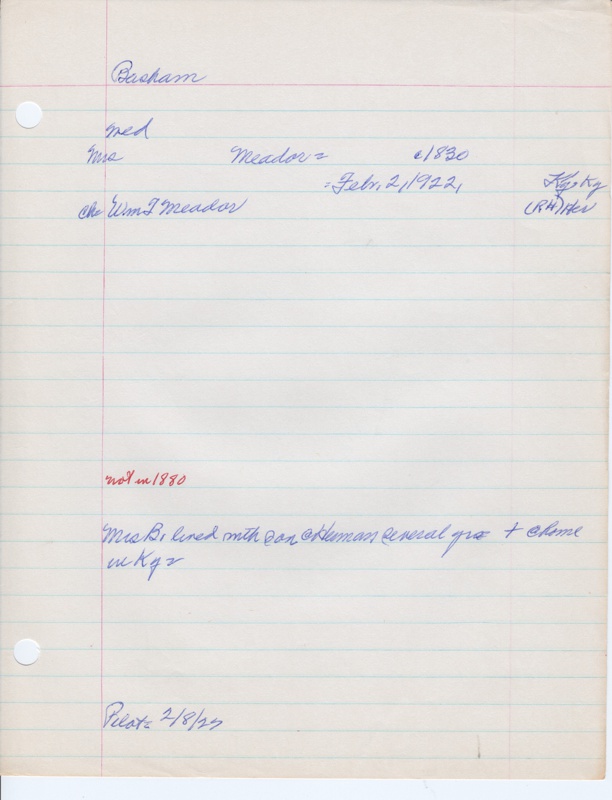 Basham
med
Mrs Meador = c1830
= Febr, 2, 1922, Ky = Ky
ch = Wm T Meador (RH) Hev
not in 1880
Mrs B, lived with son Herman several yrs + home
in Ky =
Pilot = 2/8/22